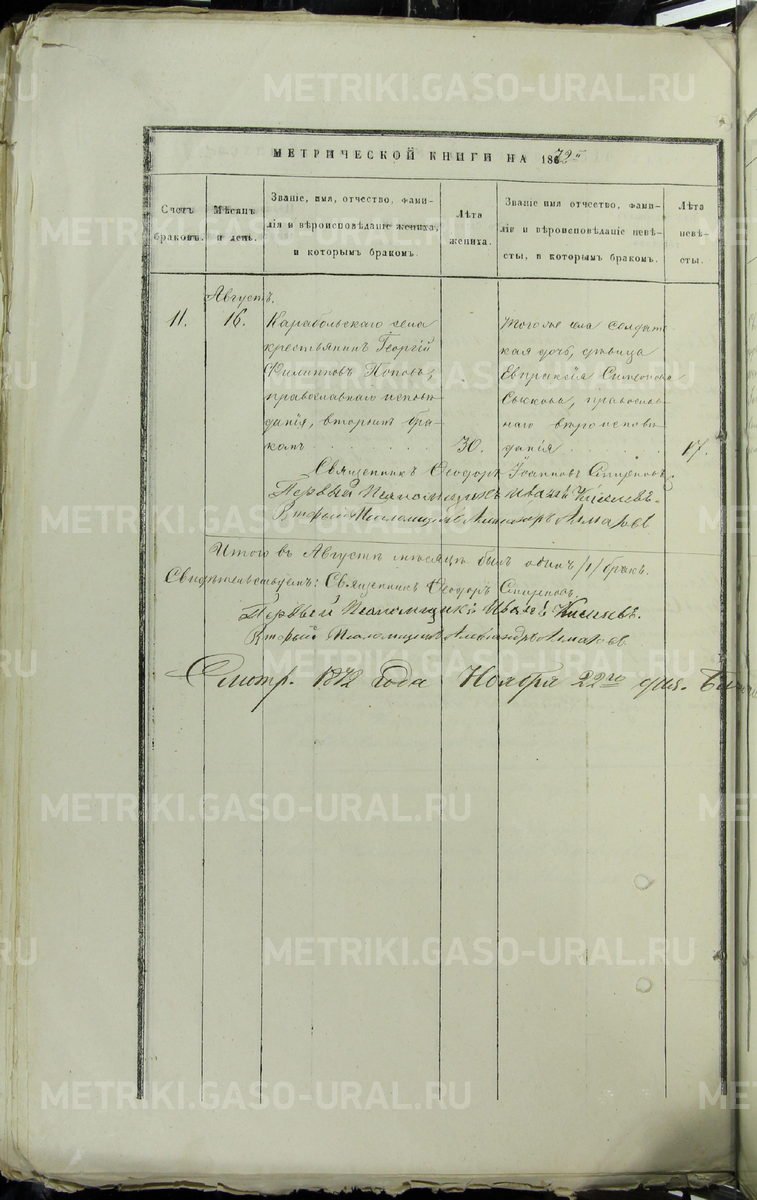 МЕТРИЧЕСКОЙ КНИГИ НА 1872й
Счетъ браковъ.
Мѣсяцъ и день.
Званіе, имя, отчество, фамилія и вѣроисповѣданіе жениха, и которымъ бракомъ.
Лѣта жениха.
Званіе имя отчество, фамиліе и вѣроисповѣданіе невѣсты, и которымъ бракомъ.
Лѣта невѣсты.
Августъ.
11.
16.
Карабольскаго села
крестьянинъ Георгій
Филипповъ Поповъ,
православнаго исповѣ
данія, вторымъ бра
комъ
30.
Того же села солдат
ская дочь, дѣвица
Евпраксія Симеонова
православ
наго вѣроисповѣ
данія
17.
Священникъ Ѳеодоръ Іоанновъ Смирновъ
Первый Псаломщикъ Иванъ Киселевъ.
Второй Псаломщикъ Александръ
Итого въ Августѣ мѣсяцѣ былъ одинъ /1/ бракъ.
Свидѣтельствуемъ: Священникъ Ѳеодоръ Смирновъ
Первый Псаломщикъ Иванъ Киселевъ.
Второй Псаломщикъ Александръ
Смотр. 1872 года Ноября 22го дня.
METRIKI.GASO-URAL.RU